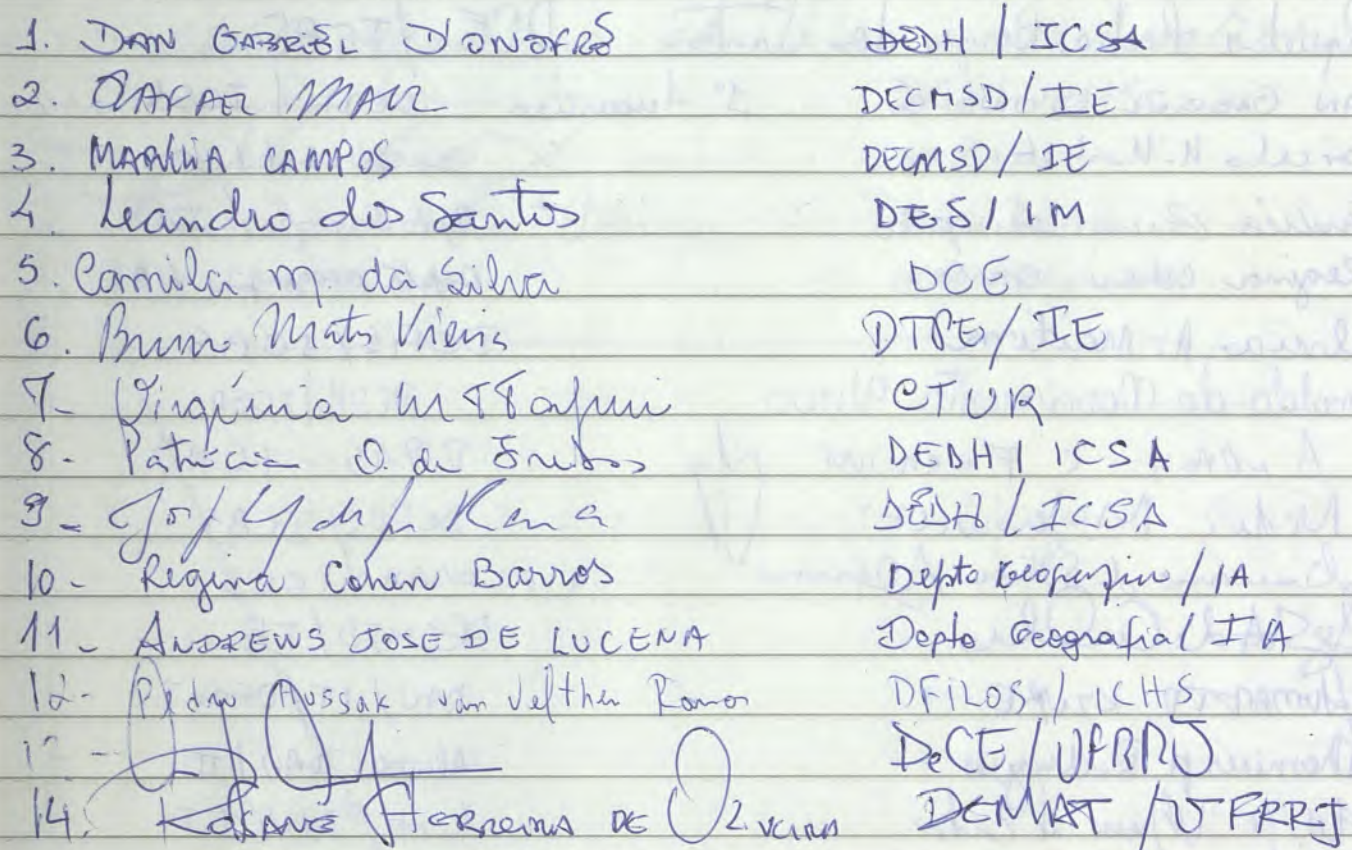 1. DAN GABRIEL D'ONOFRE DEDH / ICSA
2. RAFAEL DECMSD/IE
3. MARÍLIA CAMPOS DECMSD/IE
4 Leandro dos Santos DES/IM
5. Camila M. da Silva DCE
6. Bruno Matos Vieira DTPE/IE
7- Virgínia CTUR
8- Patrícia O. de Freitas DEDH/ICSA
9- DEDH/ICSA
10- Regina Cohen Barros Depto Geografia/IA
11- ANDREWS JOSE DE LUCENA Depto Geografia/IA
12- Pedro Hussak van Velthen Ramos DFILOS/ICHS
13- DeCE/UFRRJ
14. ROSANE FERREIRA DE OLIVEIRA DEMAT/UFRRJ